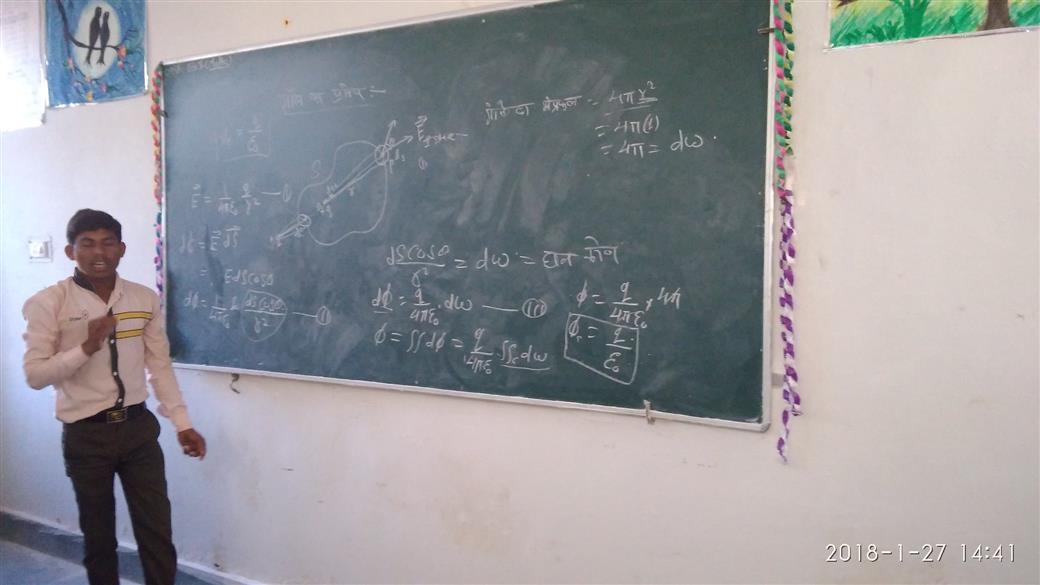 गॉस का प्रमेय :-
φ = q/ε₀
E⃗ = 1/4πε₀ q/r² — (I)
dφ = E⃗ dS⃗
= E dS cosθ
dφ = 1/4πε₀ q (dS cosθ/r²) — (II)
S
E⃗
गोले का क्षेत्रफल = 4πr²
= 4π(1)
= 4π = dω.
dS cosθ/r² = dω = घन कोण
dφ = q/4πε₀ . dω — (III)
φ = ∬ dφ = q/4πε₀ ∬ₛ dω
φ = q/4πε₀ × 4π
φ = q/ε₀
2018-1-27 14:41